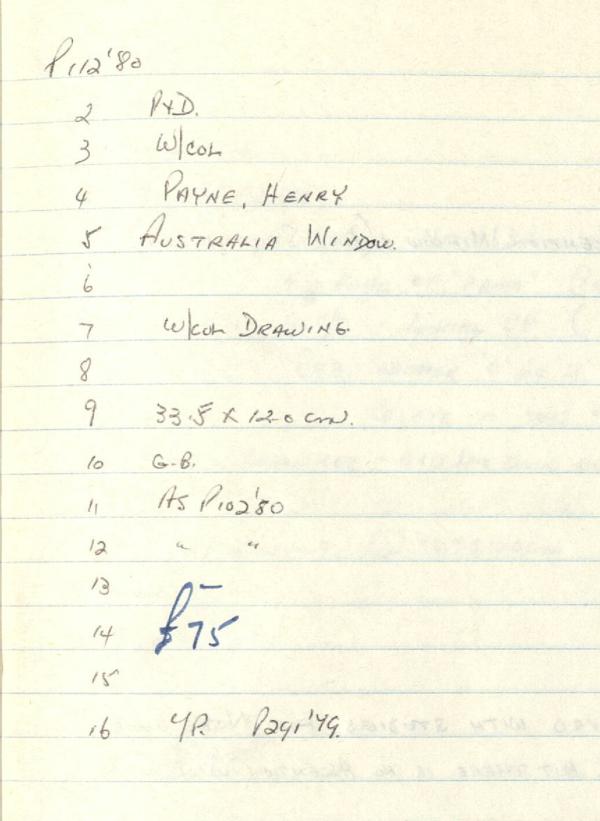 P.112'80
2 P&D.
3 W/COL
4 PAYNE, HENRY
5 AUSTRALIA WINDOW.
6
7 W/COL DRAWING.
8
9 33.5 X 12.0 cm.
10 G.B.
11 AS P102'80
12 " "
13 –
14 £75
15
16 YP.